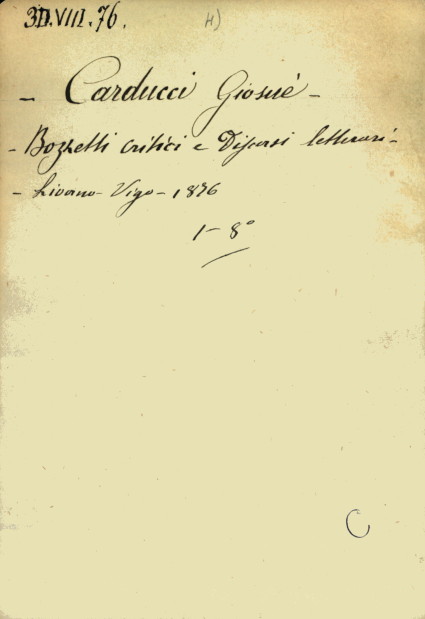 3D.VIII.76. H)
- Carducci Giosuè -
- Bozzetti critici e Discorsi letterari -
- Livorno - Vigo - 1876
1 - 8°
C